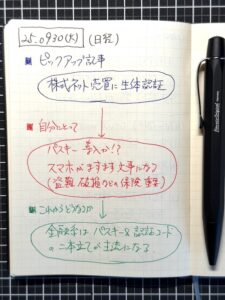 25.0930(火) (日経)
■ ピックアップ記事
株式ネット売買に生体認証
■ 自分にとって
パスキー導入か!?
スマホがますます大事になる
(盗難 破損などの保険 重要)
■ これからどうなるか
金融系はパスキー&認証コード
の二本立てが主流になる